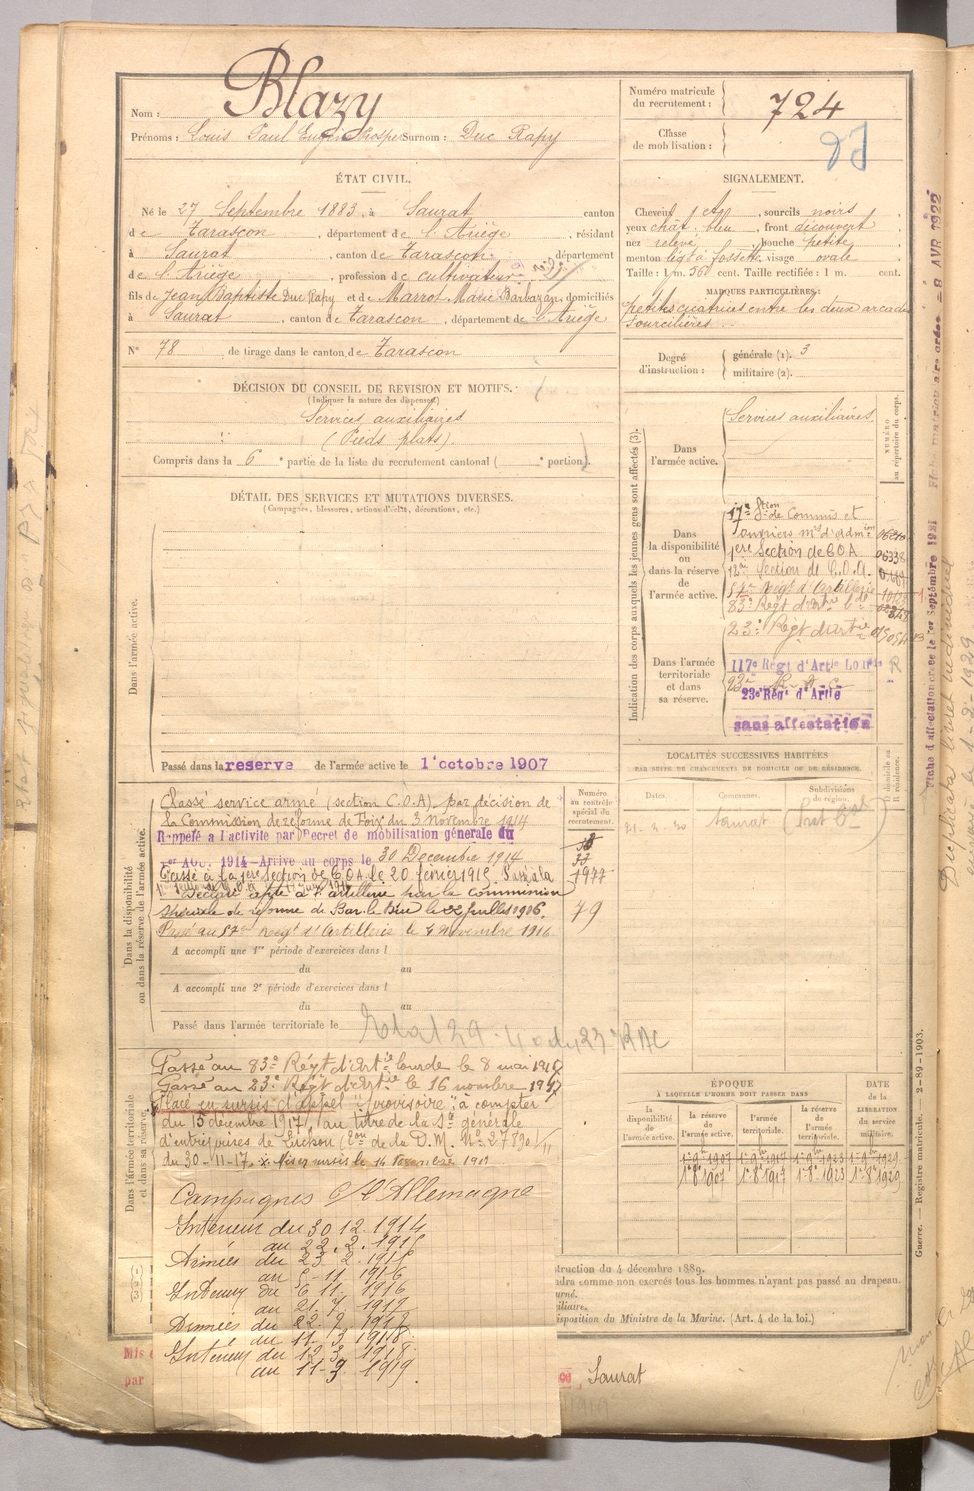 Nom : Blazy
Prénoms : Louis Paul Eugène Prosper Surnom : Duc Rapy
Numéro matricule
du recrutement : 724
Classe
de mobilisation :
ÉTAT CIVIL.
Né le 27 Septembre 1883, à Saurat canton
de Tarascon, département de l'Ariège, résidant
à Saurat, canton de Tarascon, département
de l'Ariège, profession de cultivateur
fils de Jean Baptiste Duc Rapy et de Marrot Marie Barbazan, domiciliés
à Saurat, canton de Tarascon, département de l'Ariège
N° 78 de tirage dans le canton de Tarascon
SIGNALEMENT.
Cheveux chat, sourcils noirs
yeux chât. bleu, front découvert
nez relevé, bouche petite
menton légt à fossette, visage ovale
Taille : 1 m. 56 cent. Taille rectifiée : 1 m. cent.
MARQUES PARTICULIÈRES :
petites cicatrices entre les deux arcades
sourcilières.
Degré
d'instruction :
générale (1). 3
militaire (2).
DÉCISION DU CONSEIL DE REVISION ET MOTIFS.
(Indiquer la nature des dispenses)
Services auxiliaires
(Pieds plats).
Compris dans la 6e partie de la liste du recrutement cantonal ( e portion).
DÉTAIL DES SERVICES ET MUTATIONS DIVERSES.
(Campagnes, blessures, actions d'éclat, décorations, etc.)
Dans l'armée active.
Passé dans la reserve de l'armée active le 1er octobre 1907
Indication des corps auxquels les jeunes gens sont affectés (3).
NUMÉRO
au répertoire du corps.
Dans
l'armée active.
Services auxiliaires
Dans
la disponibilité
ou
dans la réserve
de
l'armée active.
17e Stion de Commis et
ouvriers mres d'admion
1ère Section de COA 06338
12e Section de C.O.A.
57e Régt d'Artillerie
83e Régt d'Artie Lde
23e Régt d'Artie
Dans l'armée
territoriale
et dans
sa réserve.
117e Régt d'Artie Lourde
23e R.A.C.
23e Régt d'Artie
sans affectation
LOCALITÉS SUCCESSIVES HABITÉES
PAR SUITE DE CHANGEMENTS DE DOMICILE OU DE RÉSIDENCE.
Dates.
Communes.
Subdivisions
de région.
D. domicile ou
R. résidence.
Saurat
Dans la disponibilité
ou dans la réserve de l'armée active.
Numéro
au contrôle
spécial du
recrutement.
Classé service armé (section C.O.A) par décision de
la Commission de réforme de Foix du 3 Novembre 1914
Rappelé a l'activité par Décret de mobilisation génerale du
1er AOU. 1914 - Arrivé au corps le 30 Décembre 1914
Passé à la 1ère Section de C.O.A. le 20 février 1915. Passé à la
Déclaré apte à l'artillerie par la commission
spéciale de réforme de Bar-le-Duc le 22 juillet 1916.
Passé au 57e Régt d'Artillerie le 4 Novembre 1916
79
A accompli une 1re période d'exercices dans l
du au
A accompli une 2e période d'exercices dans l
du au
Passé dans l'armée territoriale le
Dans l'Armée territoriale
et dans sa réserve.
Passé au 83e Régt d'Artie lourde le 8 mai 1917
Passé au 23e Régt d'Artie le 16 novembre 1917
Placé en sursis d'appel "provisoire" à compter
du 15 décembre 1917, au titre de la Sté générale
d'entreprises de Luchon
du 30-11-17.
ÉPOQUE
À LAQUELLE L'HOMME DOIT PASSER DANS
la
disponibilité
de
l'armée active.
la réserve
de
l'armée active.
l'armée
territoriale.
la réserve
de l'armée
territoriale.
DATE
de la
LIBERATION
du service
militaire.
1-9bre 1907 1-9bre 1917 1-9bre 1923 1-9bre 1929
1-8bre 1907 1-8bre 1917 1-8bre 1923 1-8bre 1929
Campagnes C/ l'Allemagne
Intérieur du 30 12. 1914
au 22. 2. 1915
Armées du 23. 2. 1915
au 5-11 1916
Intérieur du 6 11. 1916
au 21. 7. 1917
Armées du 22. 7. 1917
au 11. 3. 1918
Intérieur du 12. 3. 1918
au 11-3. 1919.
struction du 4 décembre 1889.
ndra comme non exercés tous les hommes n'ayant pas passé au drapeau.
urné.
iliaire.
isposition du Ministre de la Marine. (Art. 4 de la loi.)
Mis
par
Saurat
Guerre. — Registre matricule. — 2-89-1903.
Fiche d'affectation créée le 1er Septembre 1921
8 AVR 1922
Duplicata livret individuel